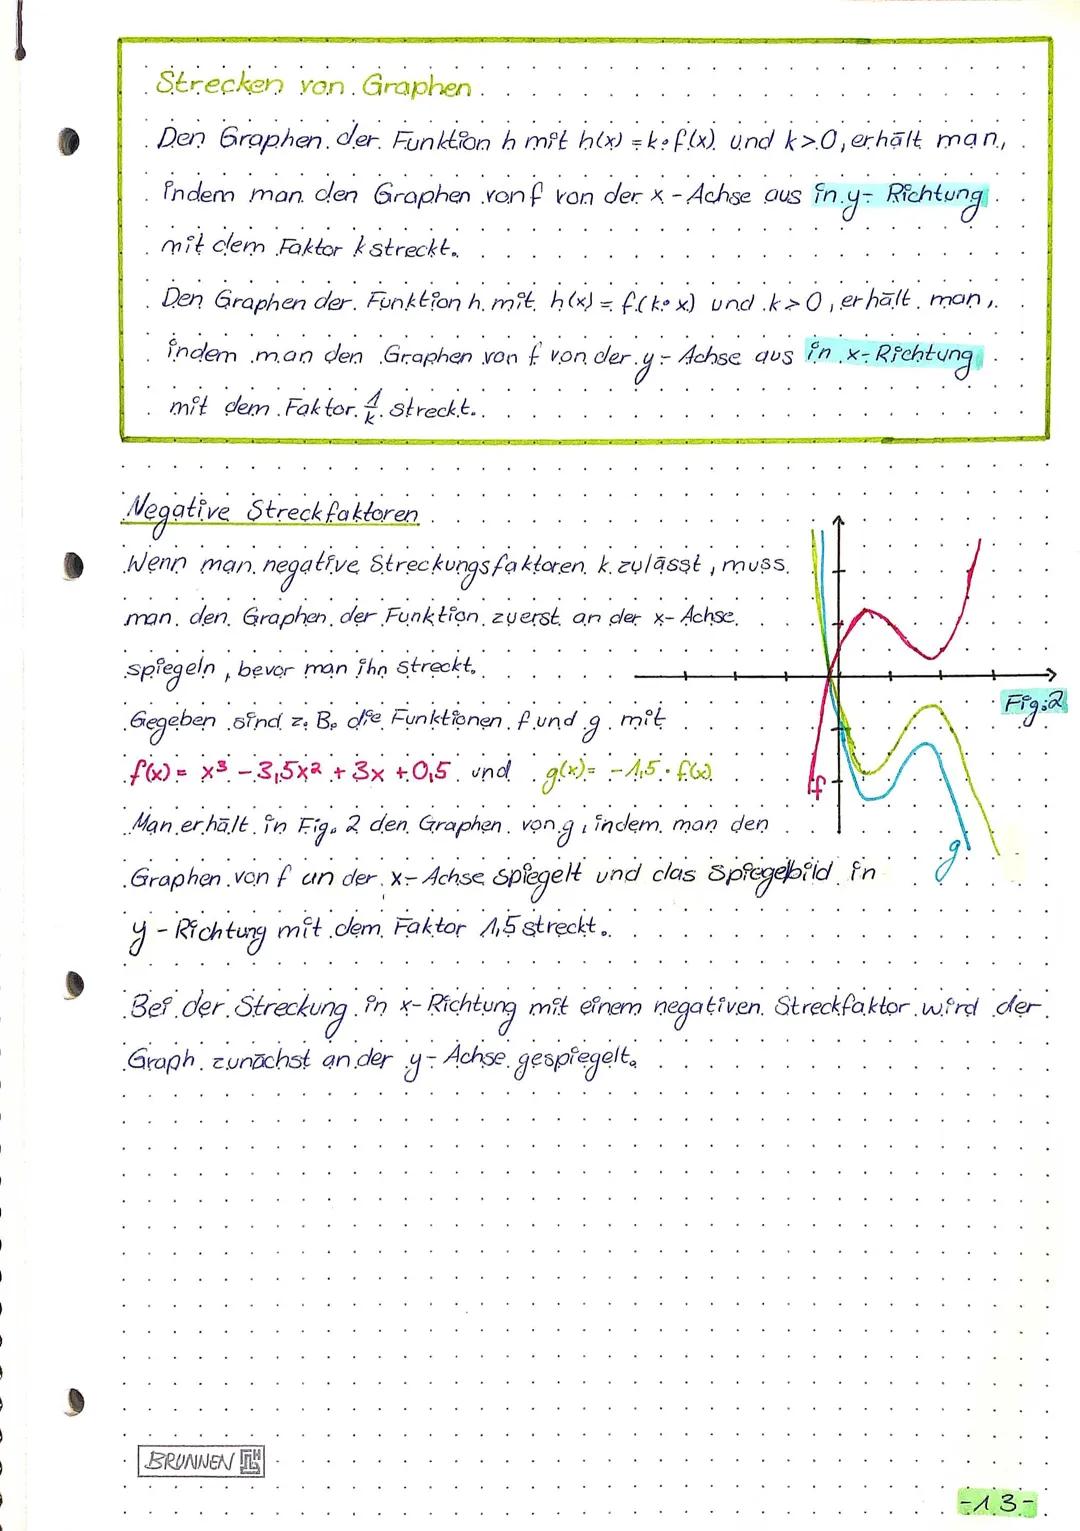 Strecken von Graphen
Den Graphen der Funktion h mit h(x) = k·f(x) und k>0, erhält man,
indem man den Graphen von f von der x-Achse aus in y-Richtung
mit dem Faktor k streckt.
Den Graphen der Funktion h mit h(x) = f(k·x) und k>0, erhält man,
indem man den Graphen von f von der y-Achse aus in x-Richtung
mit dem Faktor 1/k streckt.
Negative Streckfaktoren
Wenn man negative Streckungsfaktoren k zulässt, muss
man den Graphen der Funktion zuerst an der x-Achse
spiegeln, bevor man ihn streckt.
Fig.2
Gegeben sind z. B. die Funktionen f und g mit
f(x) = x³ - 3,5x² + 3x + 0,5 und g(x) = -1,5 · f(x)
f
Man erhält in Fig. 2 den Graphen von g, indem man den
g
Graphen von f an der x-Achse spiegelt und das Spiegelbild in
y-Richtung mit dem Faktor 1,5 streckt.
Bei der Streckung in x-Richtung mit einem negativen Streckfaktor wird der
Graph zunächst an der y-Achse gespiegelt.
BRUNNEN
-13-